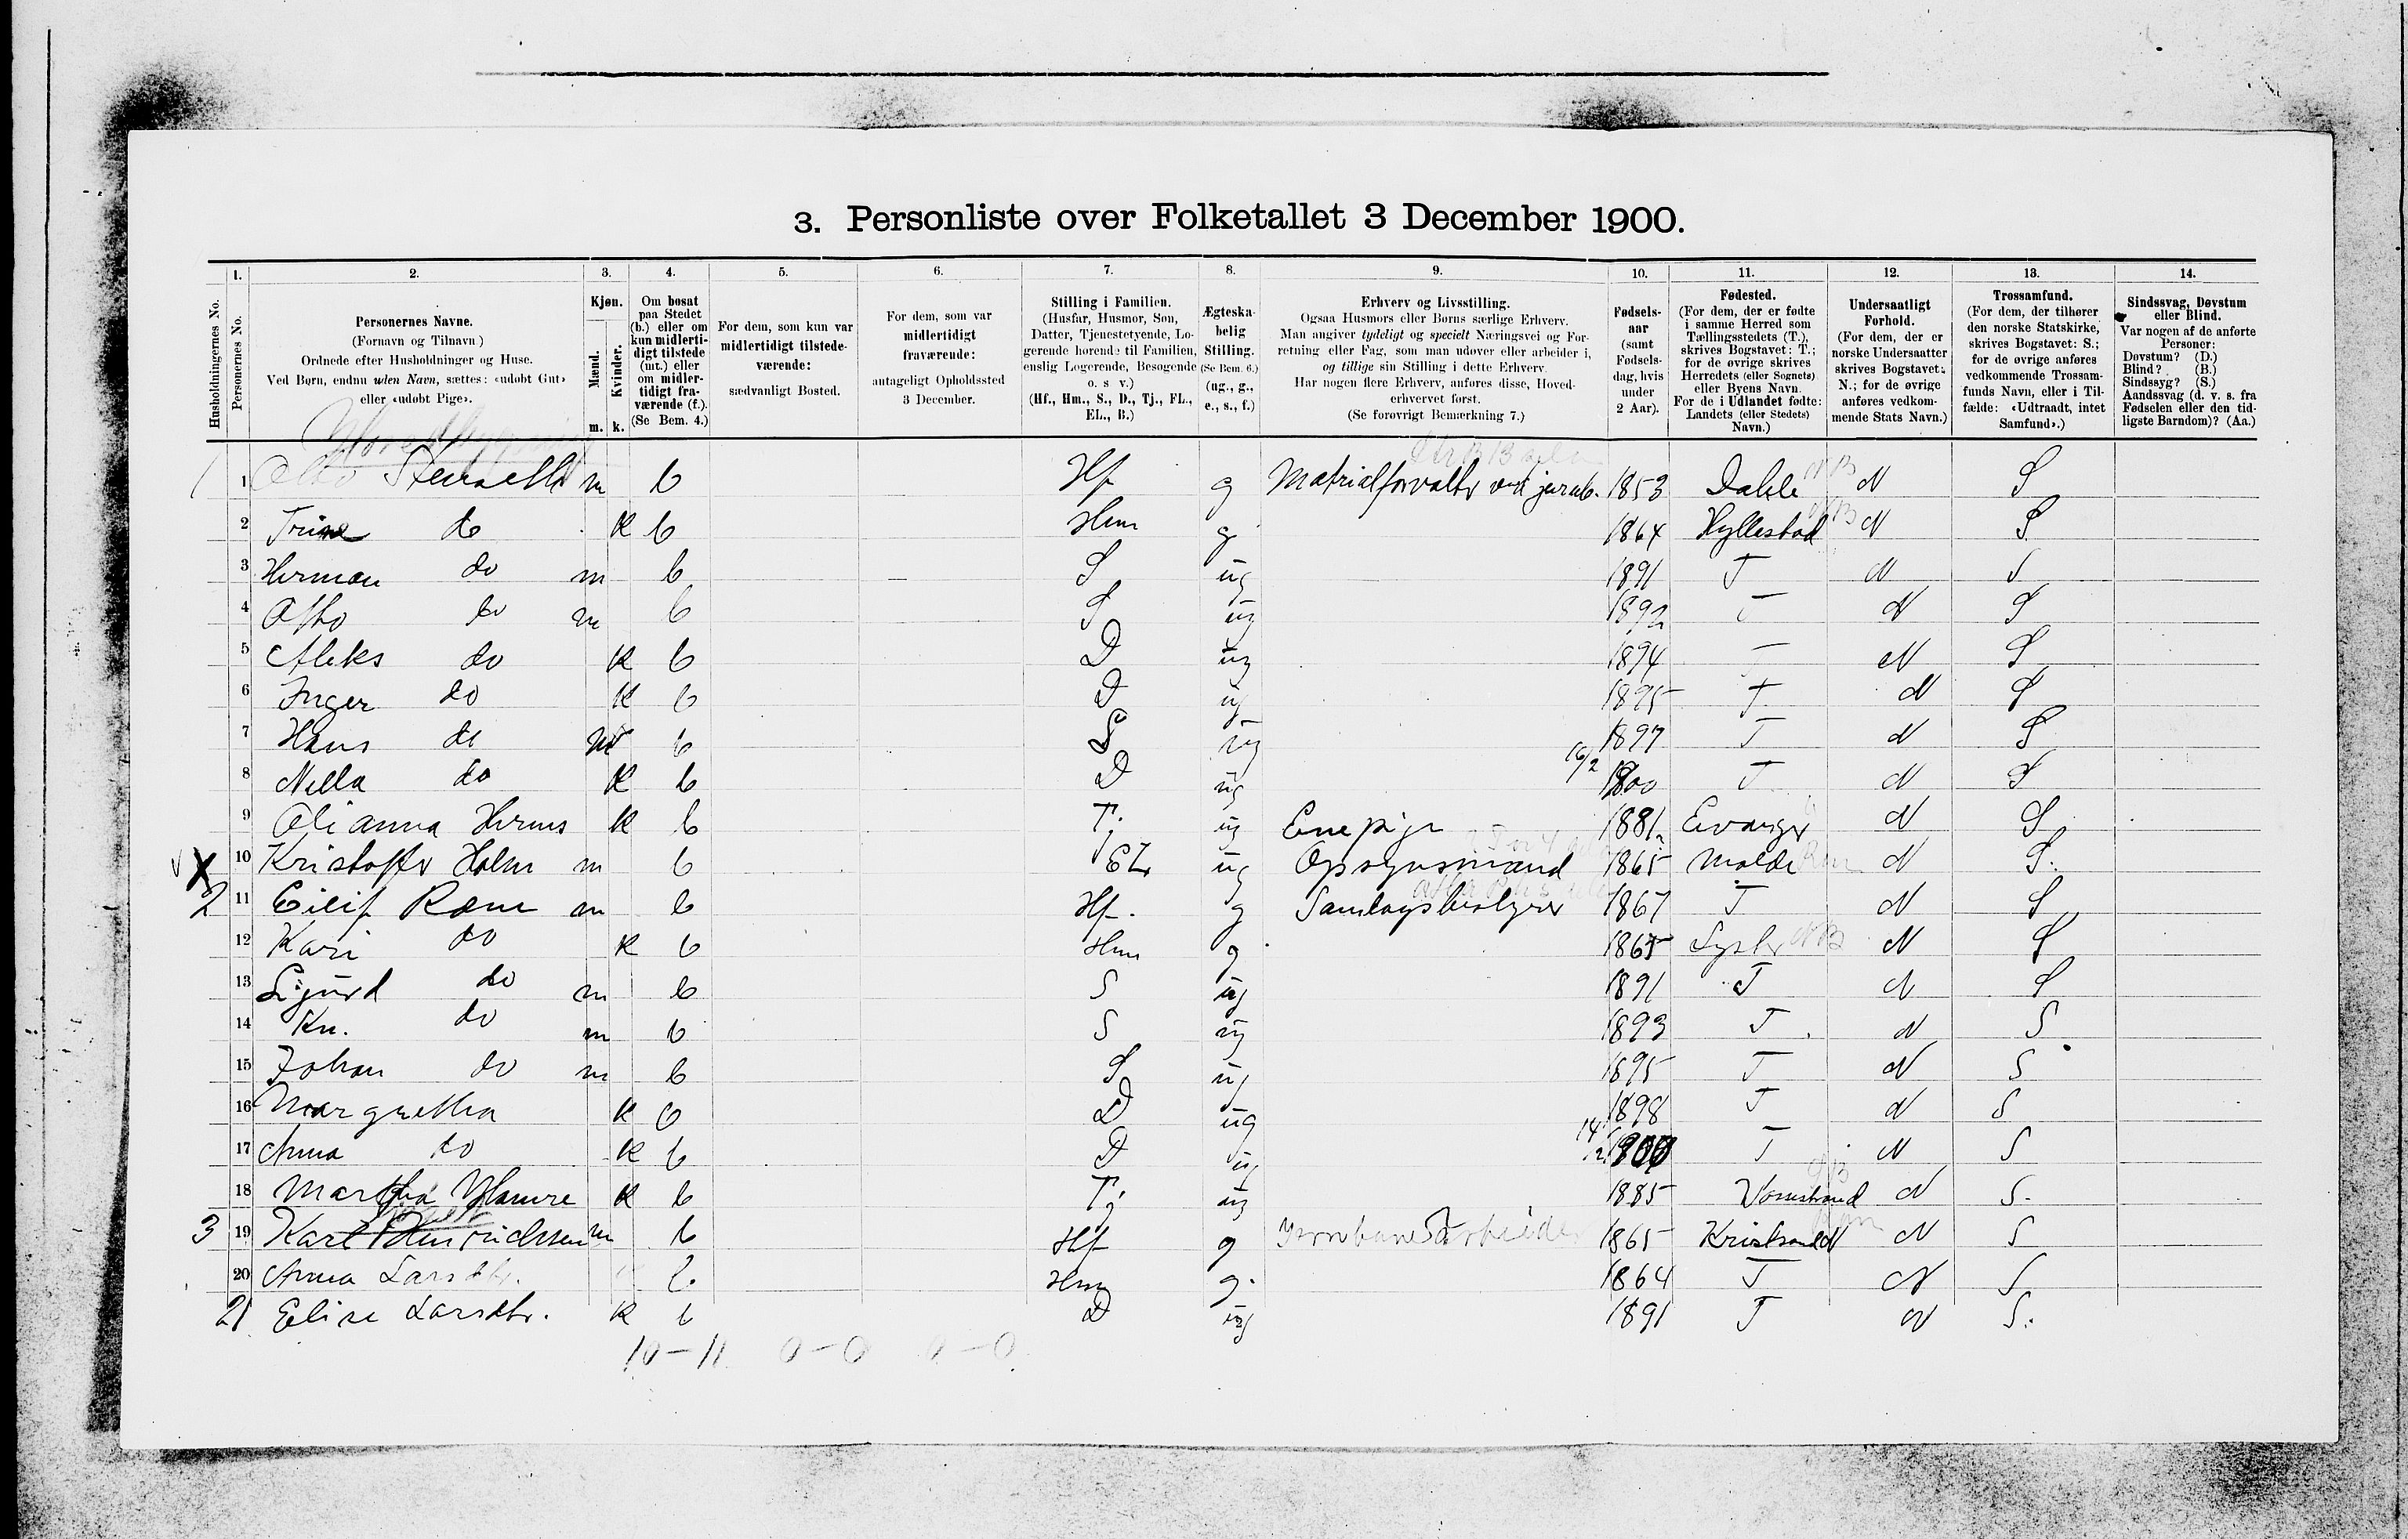 3. Personliste over Folketallet 3 December 1900.
1. 2. 3. 4. 5. 6. 7. 8. 9. 10. 11. 12. 13. 14.
Husholdningernes No.
Personernes No.
Personernes Navne.
(Fornavn og Tilnavn)
Ordnede efter Husholdninger og Huse.
Ved Børn, endnu uden Navn, sættes: «udøbt Gut»
eller «udøbt Pige».
Kjøn.
Mænd.
Kvinder.
m. k.
Om bosat
paa Stedet
(b.) eller om
kun midlerti-
digt tilstede
(mt.) eller
om midler-
tidigt fra-
værende (f.).
(Se Bem. 4.)
For dem, som kun var
midlertidigt tilstede-
værende:
sædvanligt Bosted.
For dem, som var
midlertidigt
fraværende:
antageligt Opholdssted
3 December.
Stilling i Familien.
(Husfar, Husmor, Søn,
Datter, Tjenestetyende, Lo-
gerende hørende til Familien,
enslig Logerende, Besøgende
o. s v.)
(Hf., Hm., S., D., Tj., FL.,
EL., B.)
Ægteska-
belig
Stilling.
(Se Bem. 6.)
(ug., g.,
e., s., f.)
Erhverv og Livsstilling.
Ogsaa Husmors eller Børns særlige Erhverv.
Man angiver tydeligt og specielt Næringsvei og For-
retning eller Fag, som man udøver eller arbeider i,
og tillige sin Stilling i dette Erhverv.
Har nogen flere Erhverv, anføres disse, Hoved-
erhvervet først.
(Se forøvrigt Bemærkning 7.)
Fødsels-
aar
(samt
Fødsels-
dag, hvis
under
2 Aar).
Fødested.
(For dem, der er fødte
i samme Herred som
Tællingsstedets (T.),
skrives Bogstavet: T.;
for de øvrige skrives
Herredets (eller Sognets)
eller Byens Navn.
For de i Udlandet fødte:
Landets (eller Stedets)
Navn.)
Undersaatligt
Forhold.
(For dem, der er
norske Undersaatter
skrives Bogstavet:
N.; for de øvrige
anføres vedkom-
mende Stats Navn.)
Trossamfund.
(For dem, der tilhører
den norske Statskirke,
skrives Bogstavet: S.;
for de øvrige anføres
vedkommende Trossam-
funds Navn, eller i Til-
fælde: «Udtraadt, intet
Samfund».)
Sindssvag, Døvstum
eller Blind.
Var nogen af de anførte
Personer:
Døvstum? (D.)
Blind? (B.)
Sindssyg? (S.)
Aandssvag (d. v. s. fra
Fødselen eller den tid-
ligste Barndom)? (Aa.)
1 1 m b Hf g 1853 Dahle N S
2 Trine do K b Hm g 1864 Hyllestad N S
3 Herman do m b S ug 1891 T N S
4 Otto do m b S ug 1892 T N S
5 do K b D ug 1894 T N S
6 Inger do K b D ug 1895 T N S
7 Hans do m b S ug 1897 T N S
8 Nella do K b D ug 16/2 1900 T N S
9 K b Tj ug 1881 Evanger N S
10 X Kristoffer Holm m b EL ug Opsynsmand 1865 Molde N S.
2 11 m b Hf. g Samlagsbestyrer 1867 T N S
12 Kari do K b Hm g 1865 N S
13 Sigurd do m b S ug 1891 T N S
14 Kn. do m b S ug 1893 T N S
15 Johan do m b S ug 1895 T N S
16 Margretha K b D ug 1898 T N S
17 Anna do K b D ug 14/2 1900 T N S
18 Martha K b Tj ug 1885 N S.
3 19 Karl m b Hf g Jernbanearbeider 1865 N S
20 Anna Larsdtr. b Hm g. 1864 T N S
21 Elise Larsdtr. K b D ug 1891 T N S.
10-11 0-0 0-0